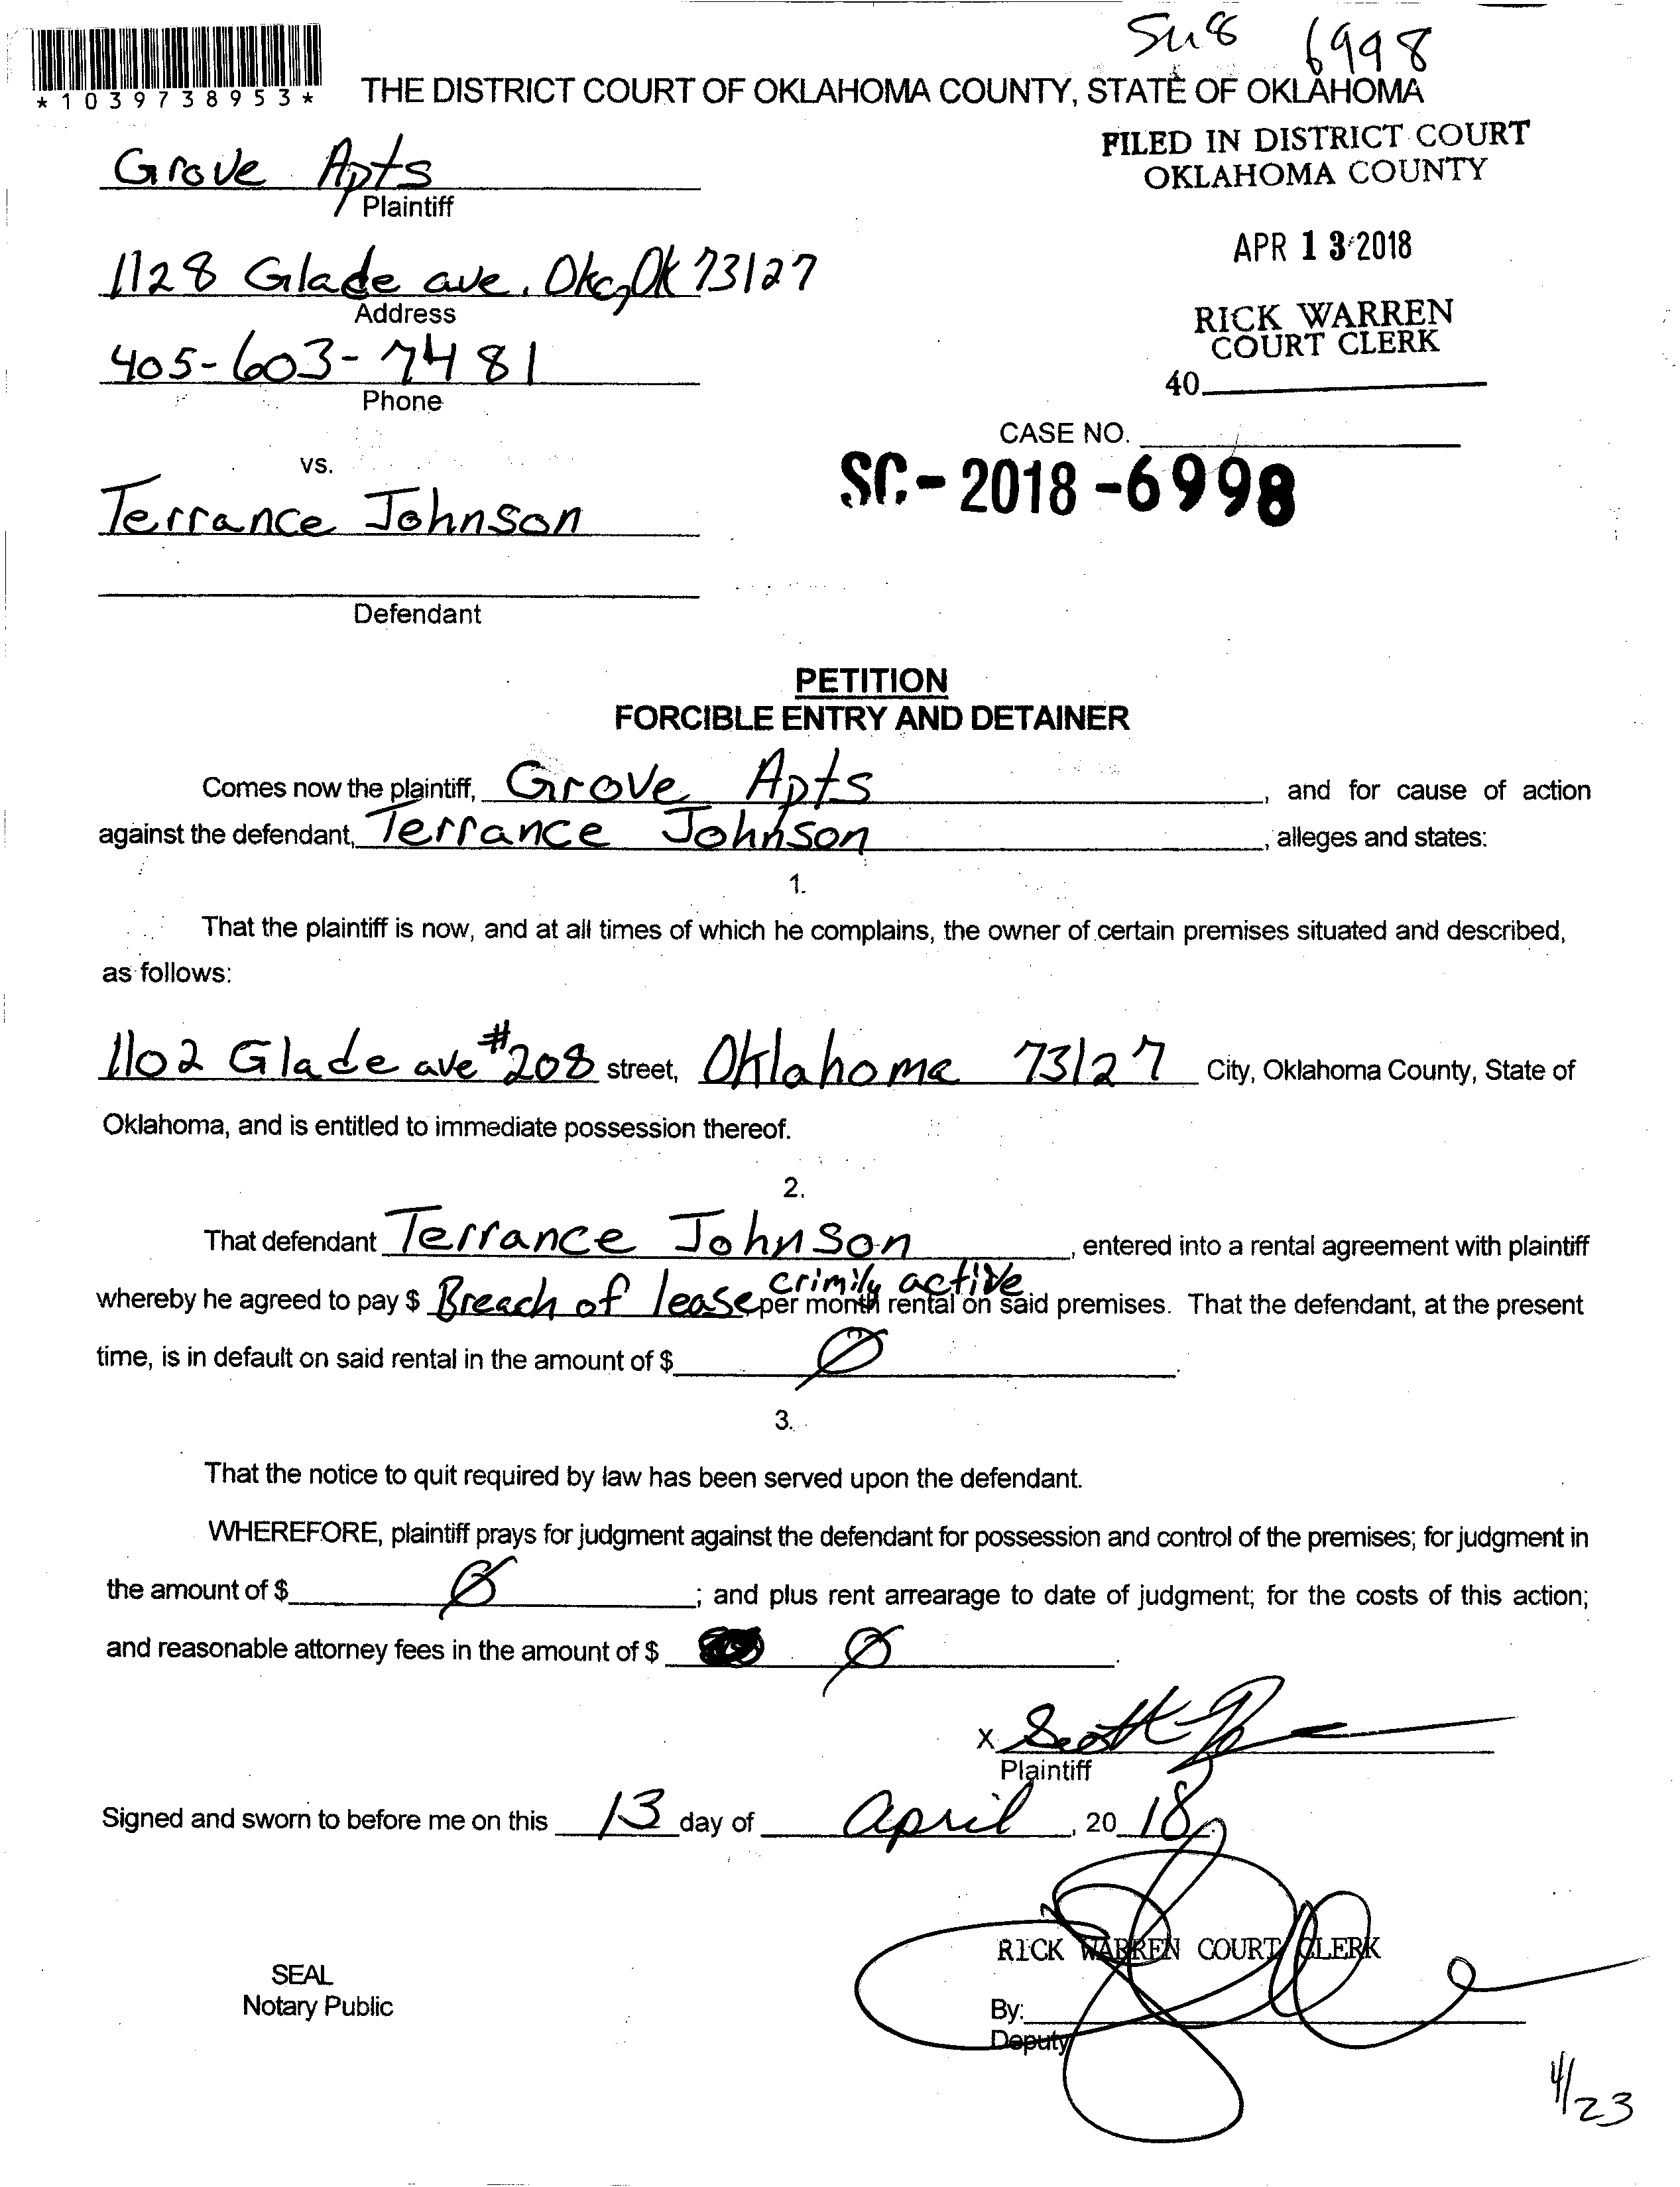 6998
*1039738953*
THE DISTRICT COURT OF OKLAHOMA COUNTY, STATE OF OKLAHOMA
FILED IN DISTRICT COURT
OKLAHOMA COUNTY
Grove Apts
Plaintiff
APR 13 2018
1128 Glade ave. Okc, Ok 73127
Address
RICK WARREN
COURT CLERK
405-603-7481
Phone
40
CASE NO.
SC-2018-6998
vs.
Terrance Johnson
Defendant
PETITION
FORCIBLE ENTRY AND DETAINER
Comes now the plaintiff, Grove Apts, and for cause of action
against the defendant, Terrance Johnson, alleges and states:
1.
That the plaintiff is now, and at all times of which he complains, the owner of certain premises situated and described,
as follows:
1102 Glade ave #208 street, Oklahoma 73127 City, Oklahoma County, State of
Oklahoma, and is entitled to immediate possession thereof.
2.
That defendant Terrance Johnson, entered into a rental agreement with plaintiff
crimily active
whereby he agreed to pay $ Breach of lease per month rental on said premises. That the defendant, at the present
time, is in default on said rental in the amount of $ Ø.
3.
That the notice to quit required by law has been served upon the defendant.
WHEREFORE, plaintiff prays for judgment against the defendant for possession and control of the premises; for judgment in
the amount of $ Ø; and plus rent arrearage to date of judgment; for the costs of this action;
and reasonable attorney fees in the amount of $ Ø.
X Scott
Plaintiff
Signed and sworn to before me on this 13 day of April, 2018.
RICK WARREN COURT CLERK
SEAL
Notary Public
By:
Deputy
4/23